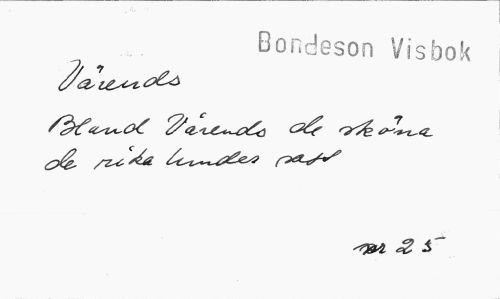 Bondeson Visbok
Värends
Bland Värends de sköna
de rika lundar satt
nr 25